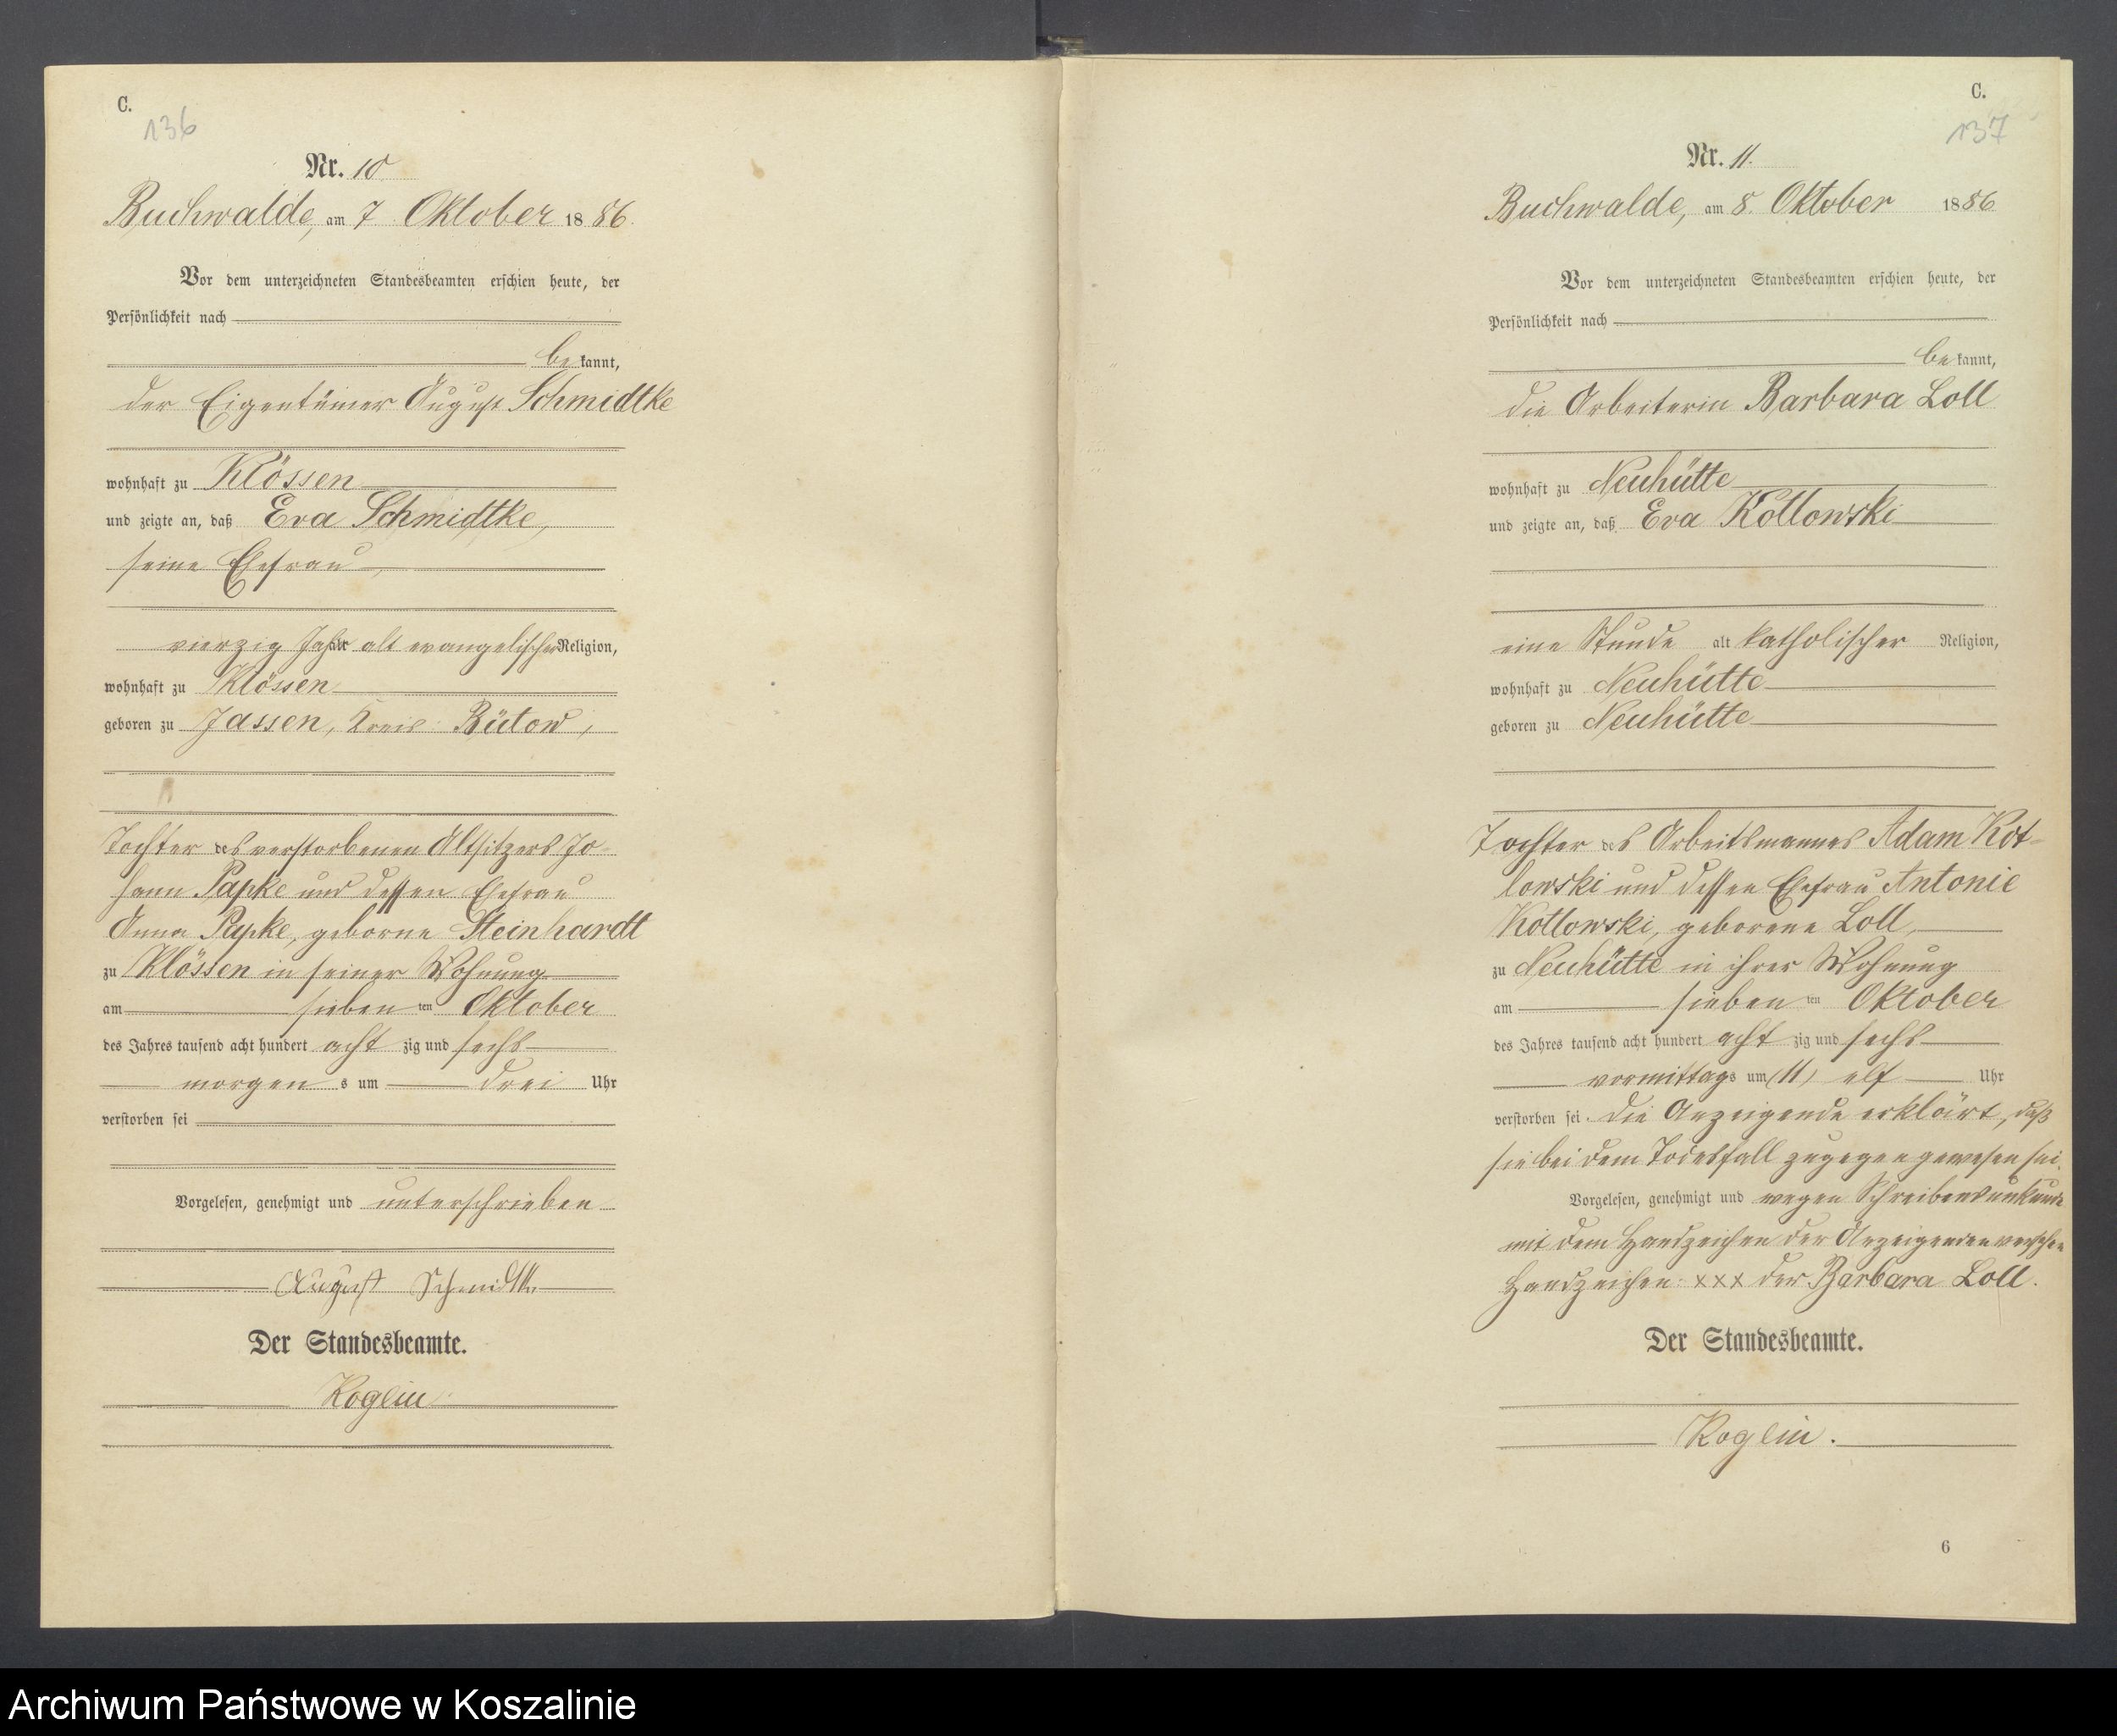 C.
136
Nr. 10
Buchwalde, am 7. Oktober 1886.
Vor dem unterzeichneten Standesbeamten erschien heute, der
Persönlichkeit nach
bekannt,
der Eigentümer August Schmidtke
wohnhaft zu Klössen
und zeigte an, daß Eva Schmidtke,
seine Ehefrau,
vierzig Jahr alt evangelischer Religion,
wohnhaft zu Klössen
geboren zu Jassen, Kreis Bütow,
Tochter des verstorbenen Altsitzers Jo-
hann Papke und dessen Ehefrau
Anna Papke, geborne Steinhardt
zu Klössen in seiner Wohnung
am siebenten Oktober
des Jahres tausend acht hundert achtzig und sechs
morgens um drei Uhr
verstorben sei
Vorgelesen, genehmigt und unterschrieben
August Schmidtke
Der Standesbeamte.
Koglin
C.
137
Nr. 11.
Buchwalde, am 8. Oktober 1886
Vor dem unterzeichneten Standesbeamten erschien heute, der
Persönlichkeit nach
bekannt,
die Arbeiterin Barbara Loll
wohnhaft zu Neuhütte
und zeigte an, daß Eva Kotlowski
eine Stunde alt katholischer Religion,
wohnhaft zu Neuhütte
geboren zu Neuhütte
Tochter des Arbeitsmannes Adam Kot-
lowski und dessen Ehefrau Antonie
Kotlowski, geborene Loll,
zu Neuhütte in ihrer Wohnung
am siebenten Oktober
des Jahres tausend acht hundert achtzig und sechs
vormittags um (11) elf Uhr
verstorben sei. Die Anzeigende erklärt, daß
sie bei dem Todesfall zugegen gewesen sei.
Vorgelesen, genehmigt und wegen Schreibensunkunde
mit dem Handzeichen der Anzeigenden versehen
Handzeichen xxx der Barbara Loll.
Der Standesbeamte.
Koglin.
6
Archiwum Państwowe w Koszalinie